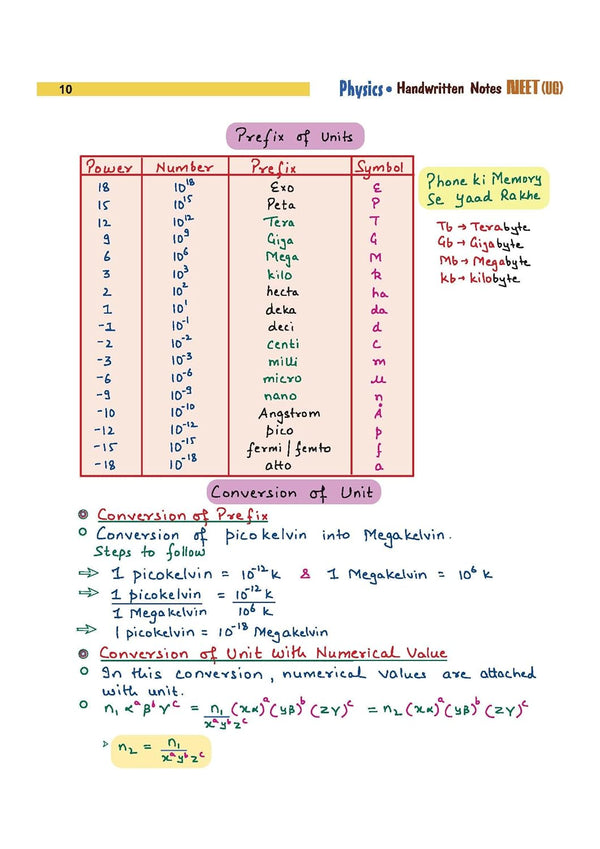 10
Physics • Handwritten Notes NEET (UG)
Prefix of Units
Power Number Prefix Symbol
18 10¹⁸ Exo E
15 10¹⁵ Peta P
12 10¹² Tera T
9 10⁹ Giga G
6 10⁶ Mega M
3 10³ kilo k
2 10² hecta ha
1 10¹ deka da
-1 10⁻¹ deci d
-2 10⁻² centi c
-3 10⁻³ milli m
-6 10⁻⁶ micro μ
-9 10⁻⁹ nano n
-10 10⁻¹⁰ Angstrom Å
-12 10⁻¹² pico p
-15 10⁻¹⁵ fermi / femto f
-18 10⁻¹⁸ atto a
Phone ki Memory
Se yaad Rakhe
Tb → Terabyte
Gb → Gigabyte
Mb → Megabyte
kb → kilobyte
Conversion of Unit
Conversion of Prefix
Conversion of picokelvin into Megakelvin.
Steps to follow
⇒ 1 picokelvin = 10⁻¹² k & 1 Megakelvin = 10⁶ k
⇒ 1 picokelvin / 1 Megakelvin = 10⁻¹² k / 10⁶ k
⇒ 1 picokelvin = 10⁻¹⁸ Megakelvin
Conversion of Unit with Numerical Value
In this conversion, numerical values are attached
with unit.
n₁ αᵃ βᵇ γᶜ = n₁ / xᵃyᵇzᶜ (xα)ᵃ (yβ)ᵇ (zγ)ᶜ = n₂ (xα)ᵃ (yβ)ᵇ (zγ)ᶜ
n₂ = n₁ / xᵃyᵇzᶜ